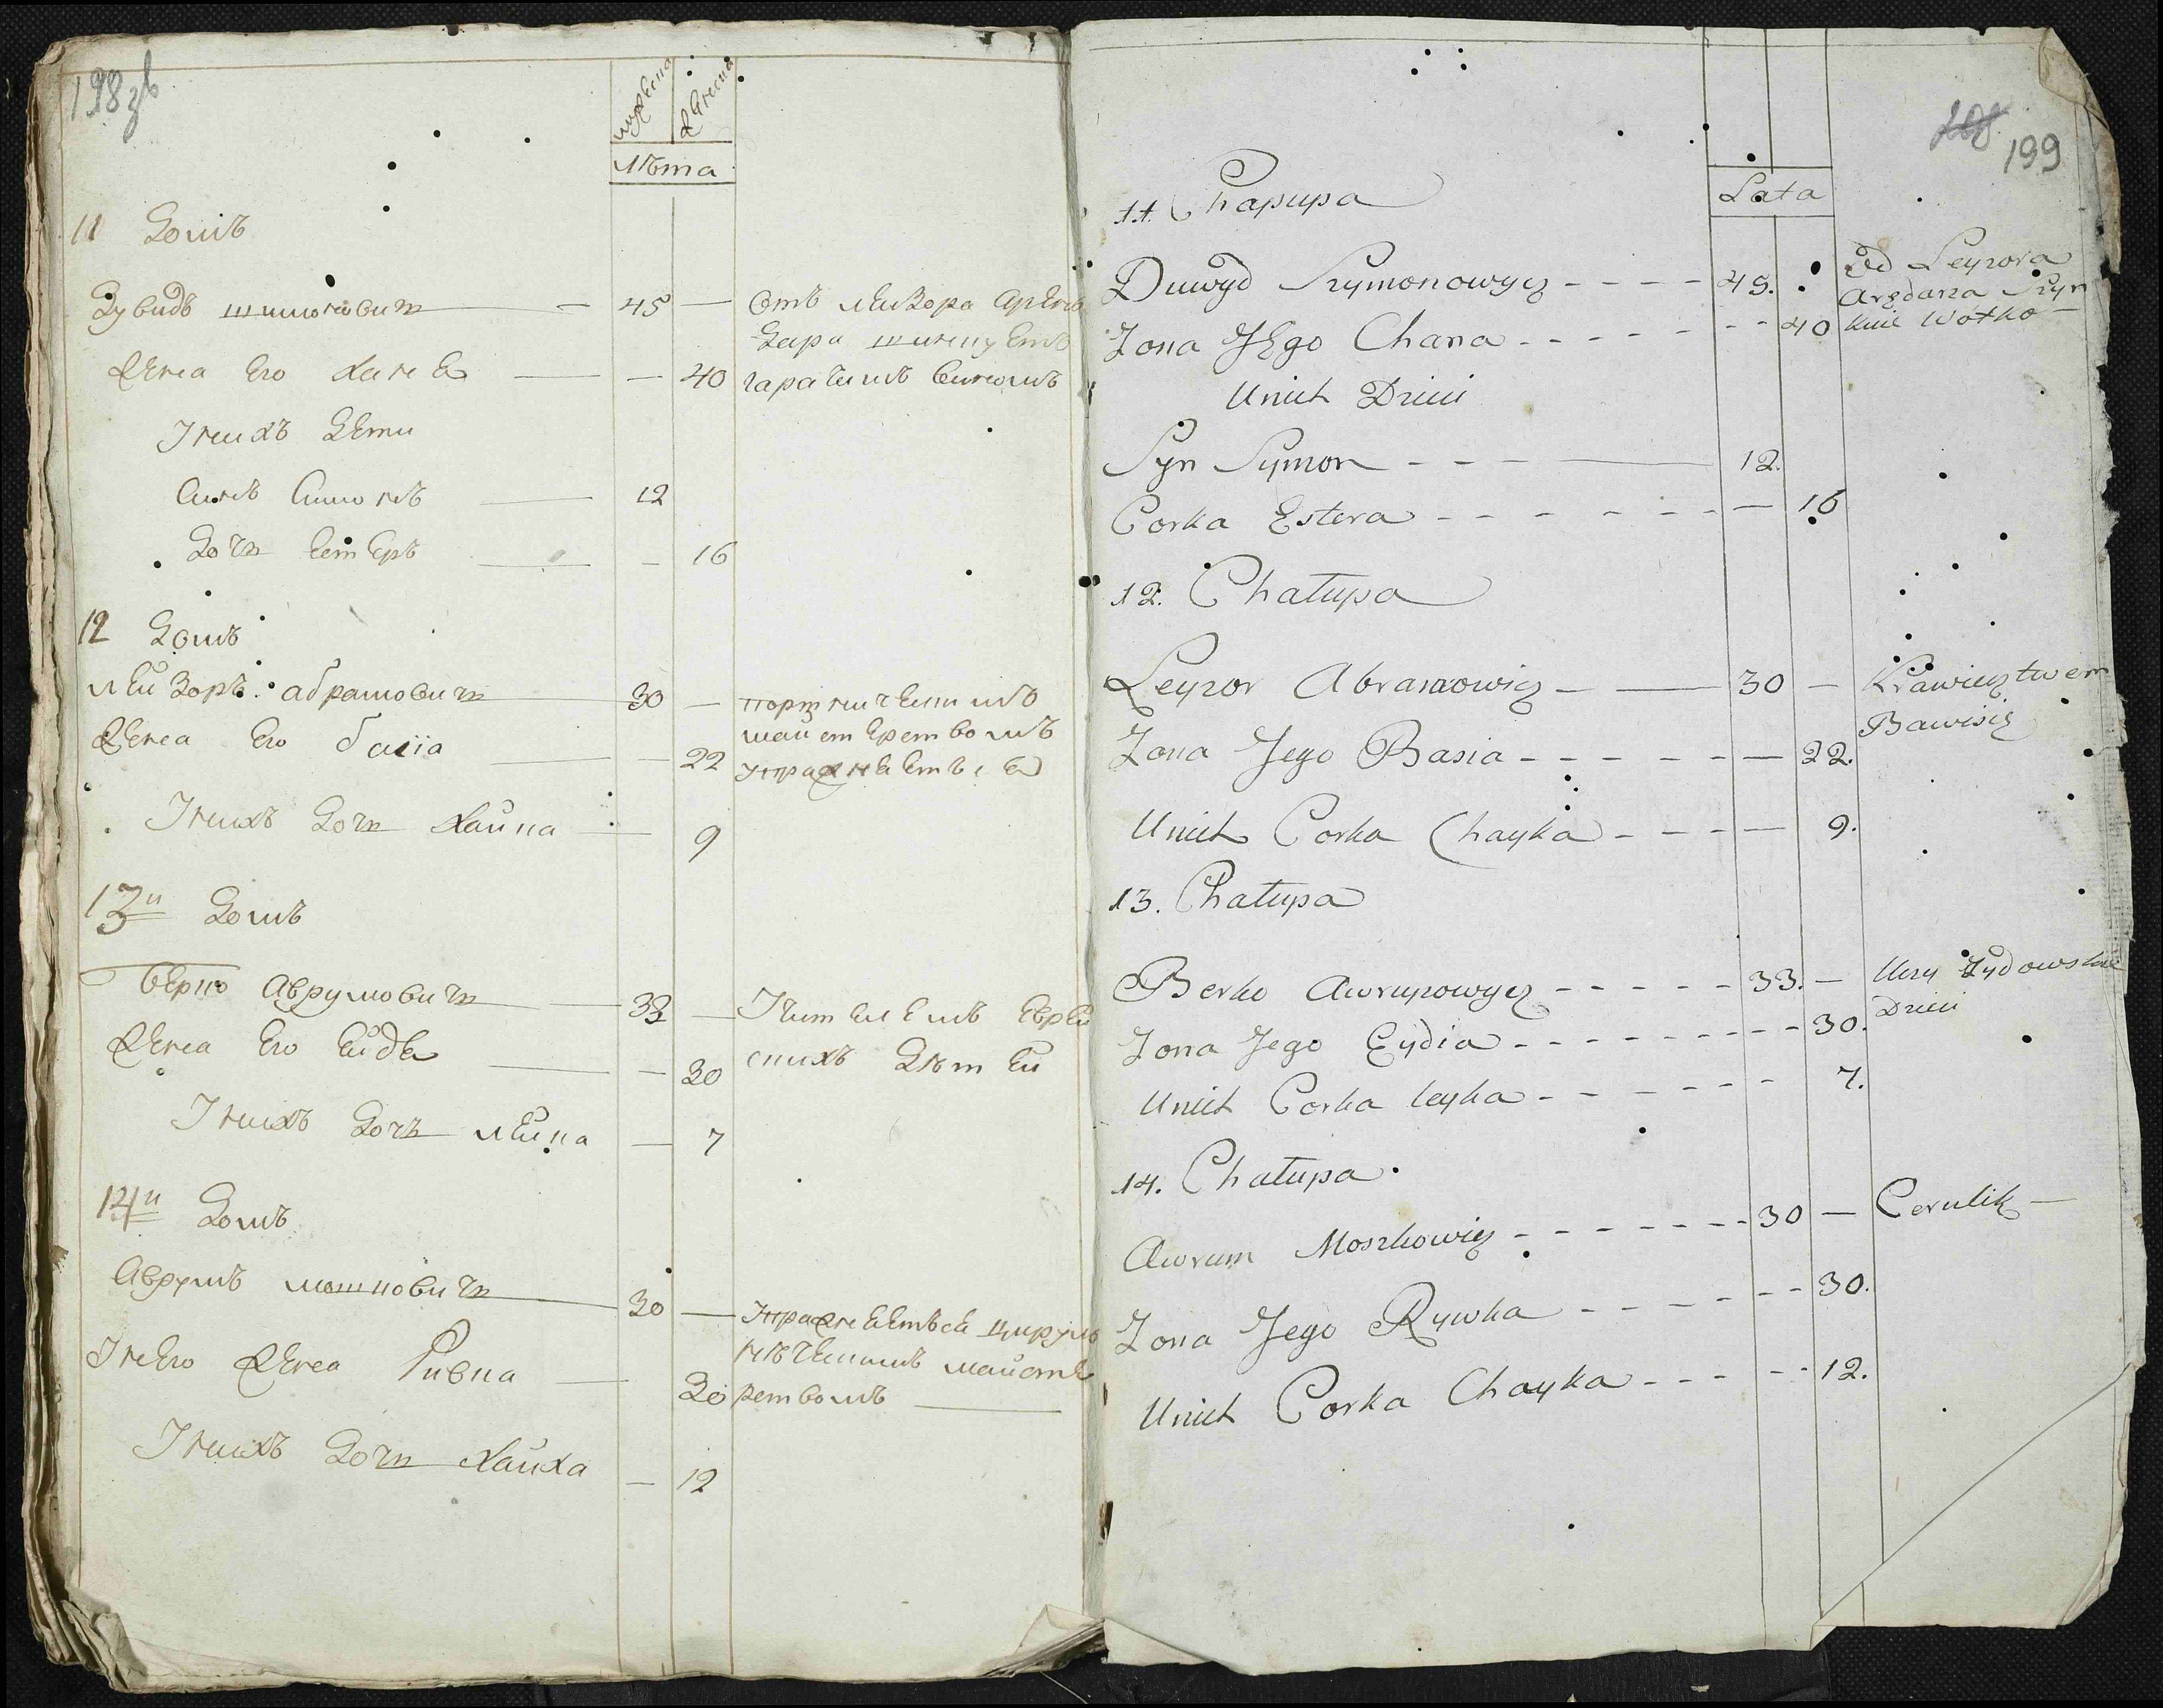 198 зв
мужеска
женска
лѣта
11 Домъ
Дувидъ шимоновичь — 45 — Отъ леизора Арен
дара шинкуетъ
Жена Его хана — — 40 гарачимъ виномъ
И нихъ дети
Синъ Симонъ — 12
Дочь Естеръ — — 16
12 Домъ
леизоръ абрамовичь — 30 — портническимъ
майстерствомъ
Жена Его басiа — — 22 упражнаетьса
И нихъ Дочь хайка — — 9
13й Домъ
берко аврумовичь — 33 — Учителемъ Еврей
Жена Его Ейдя — — 30 скихъ дѣтей
И нихъ Дочь лейка — 7
14й Домъ
Аврумъ мошковичь — 30 — упражнаетьса цирул
нѣческимъ майсте
И нЕго жена Ривка — 30 рствомъ —
И нихъ Дочь хайха — 12
199
Lata
11. Chapupa
Duwyd Szymonowycz - - - - 45. Od Leyzora
Arędarza Szyn
Zona JEgo Chana - - - - - - 40 kuie Wotko —
Unich Dzieci
Syn Symon - - - — 12.
Corka Estera - - - - - - — 16
12. Chatupa
Leyzor Abramowicz — — 30 — Krawiectwem
Bawisię
Zona Jego Basia - - - - - — 22.
Unich Corka Chayka - - - — 9.
13. Chatupa
Berko Awrupowycz - - - - - 33. — Uczy Zydowskie
Dzieci
Zona Jego Eydia - - - - - - - - 30.
Unich Corka leyka - - - - - - 7.
14. Chatupa
Awrum Moszkowicz - - - - - - - 30 — Cerulik —
Zona Jego Rywka - - - - - - - 30.
Unich Corka Chayka - - - - - 12.